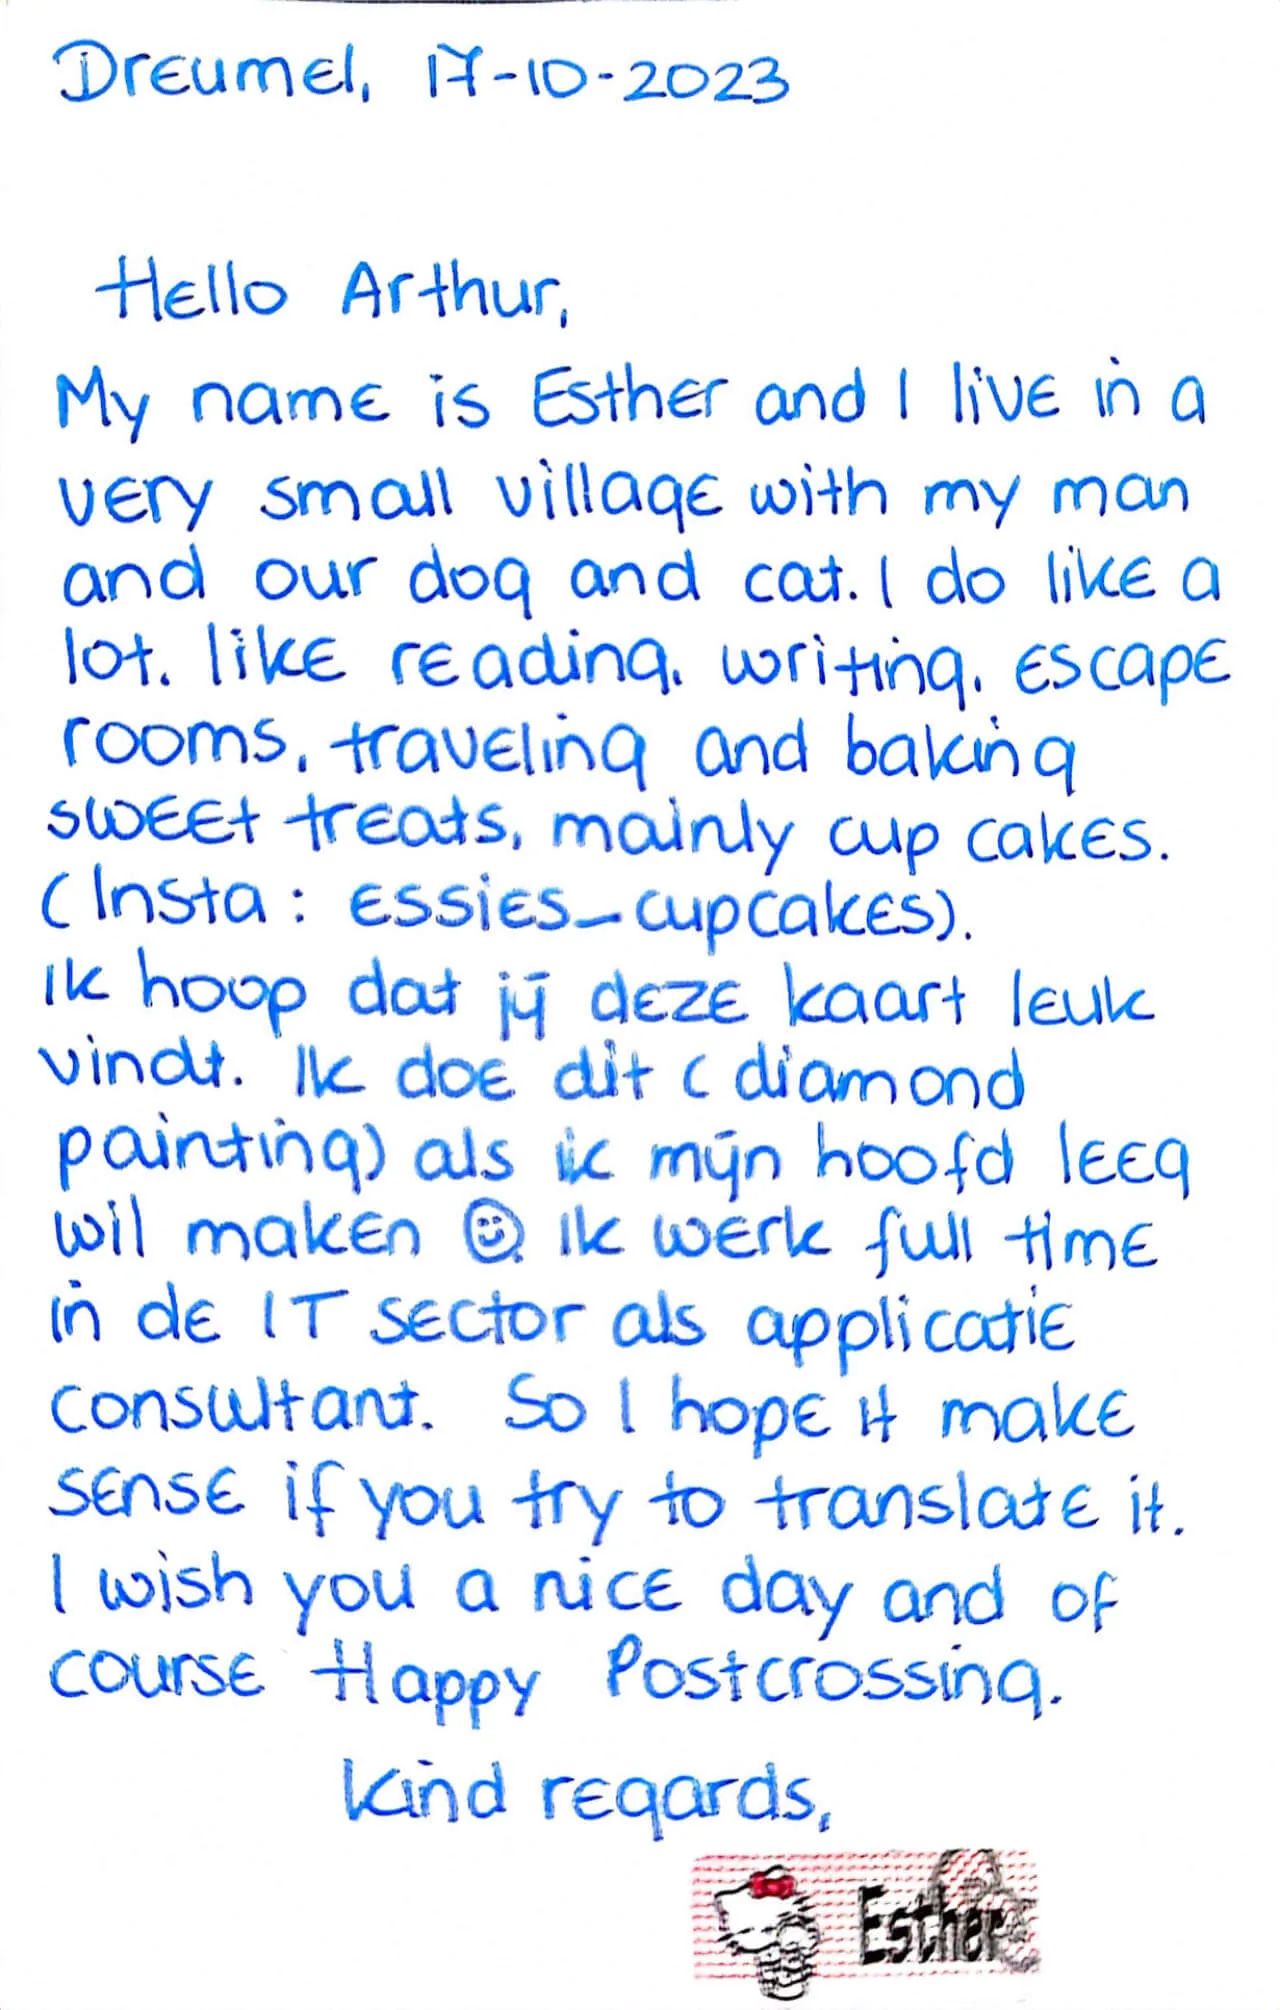 Dreumel, 17-10-2023
Hello Arthur,
My name is Esther and I live in a
very small village with my man
and our dog and cat. I do like a
lot. like reading, writing, escape
rooms, traveling and baking
sweet treats, mainly cup cakes.
(Insta: essies_cupcakes).
Ik hoop dat jij deze kaart leuk
vindt. Ik doe dit (diamond
painting) als ik mijn hoofd leeg
wil maken ☺. Ik werk full time
in de IT sector als applicatie
consultant. So I hope it make
sense if you try to translate it.
I wish you a nice day and of
course Happy Postcrossing.
Kind regards,
Esther